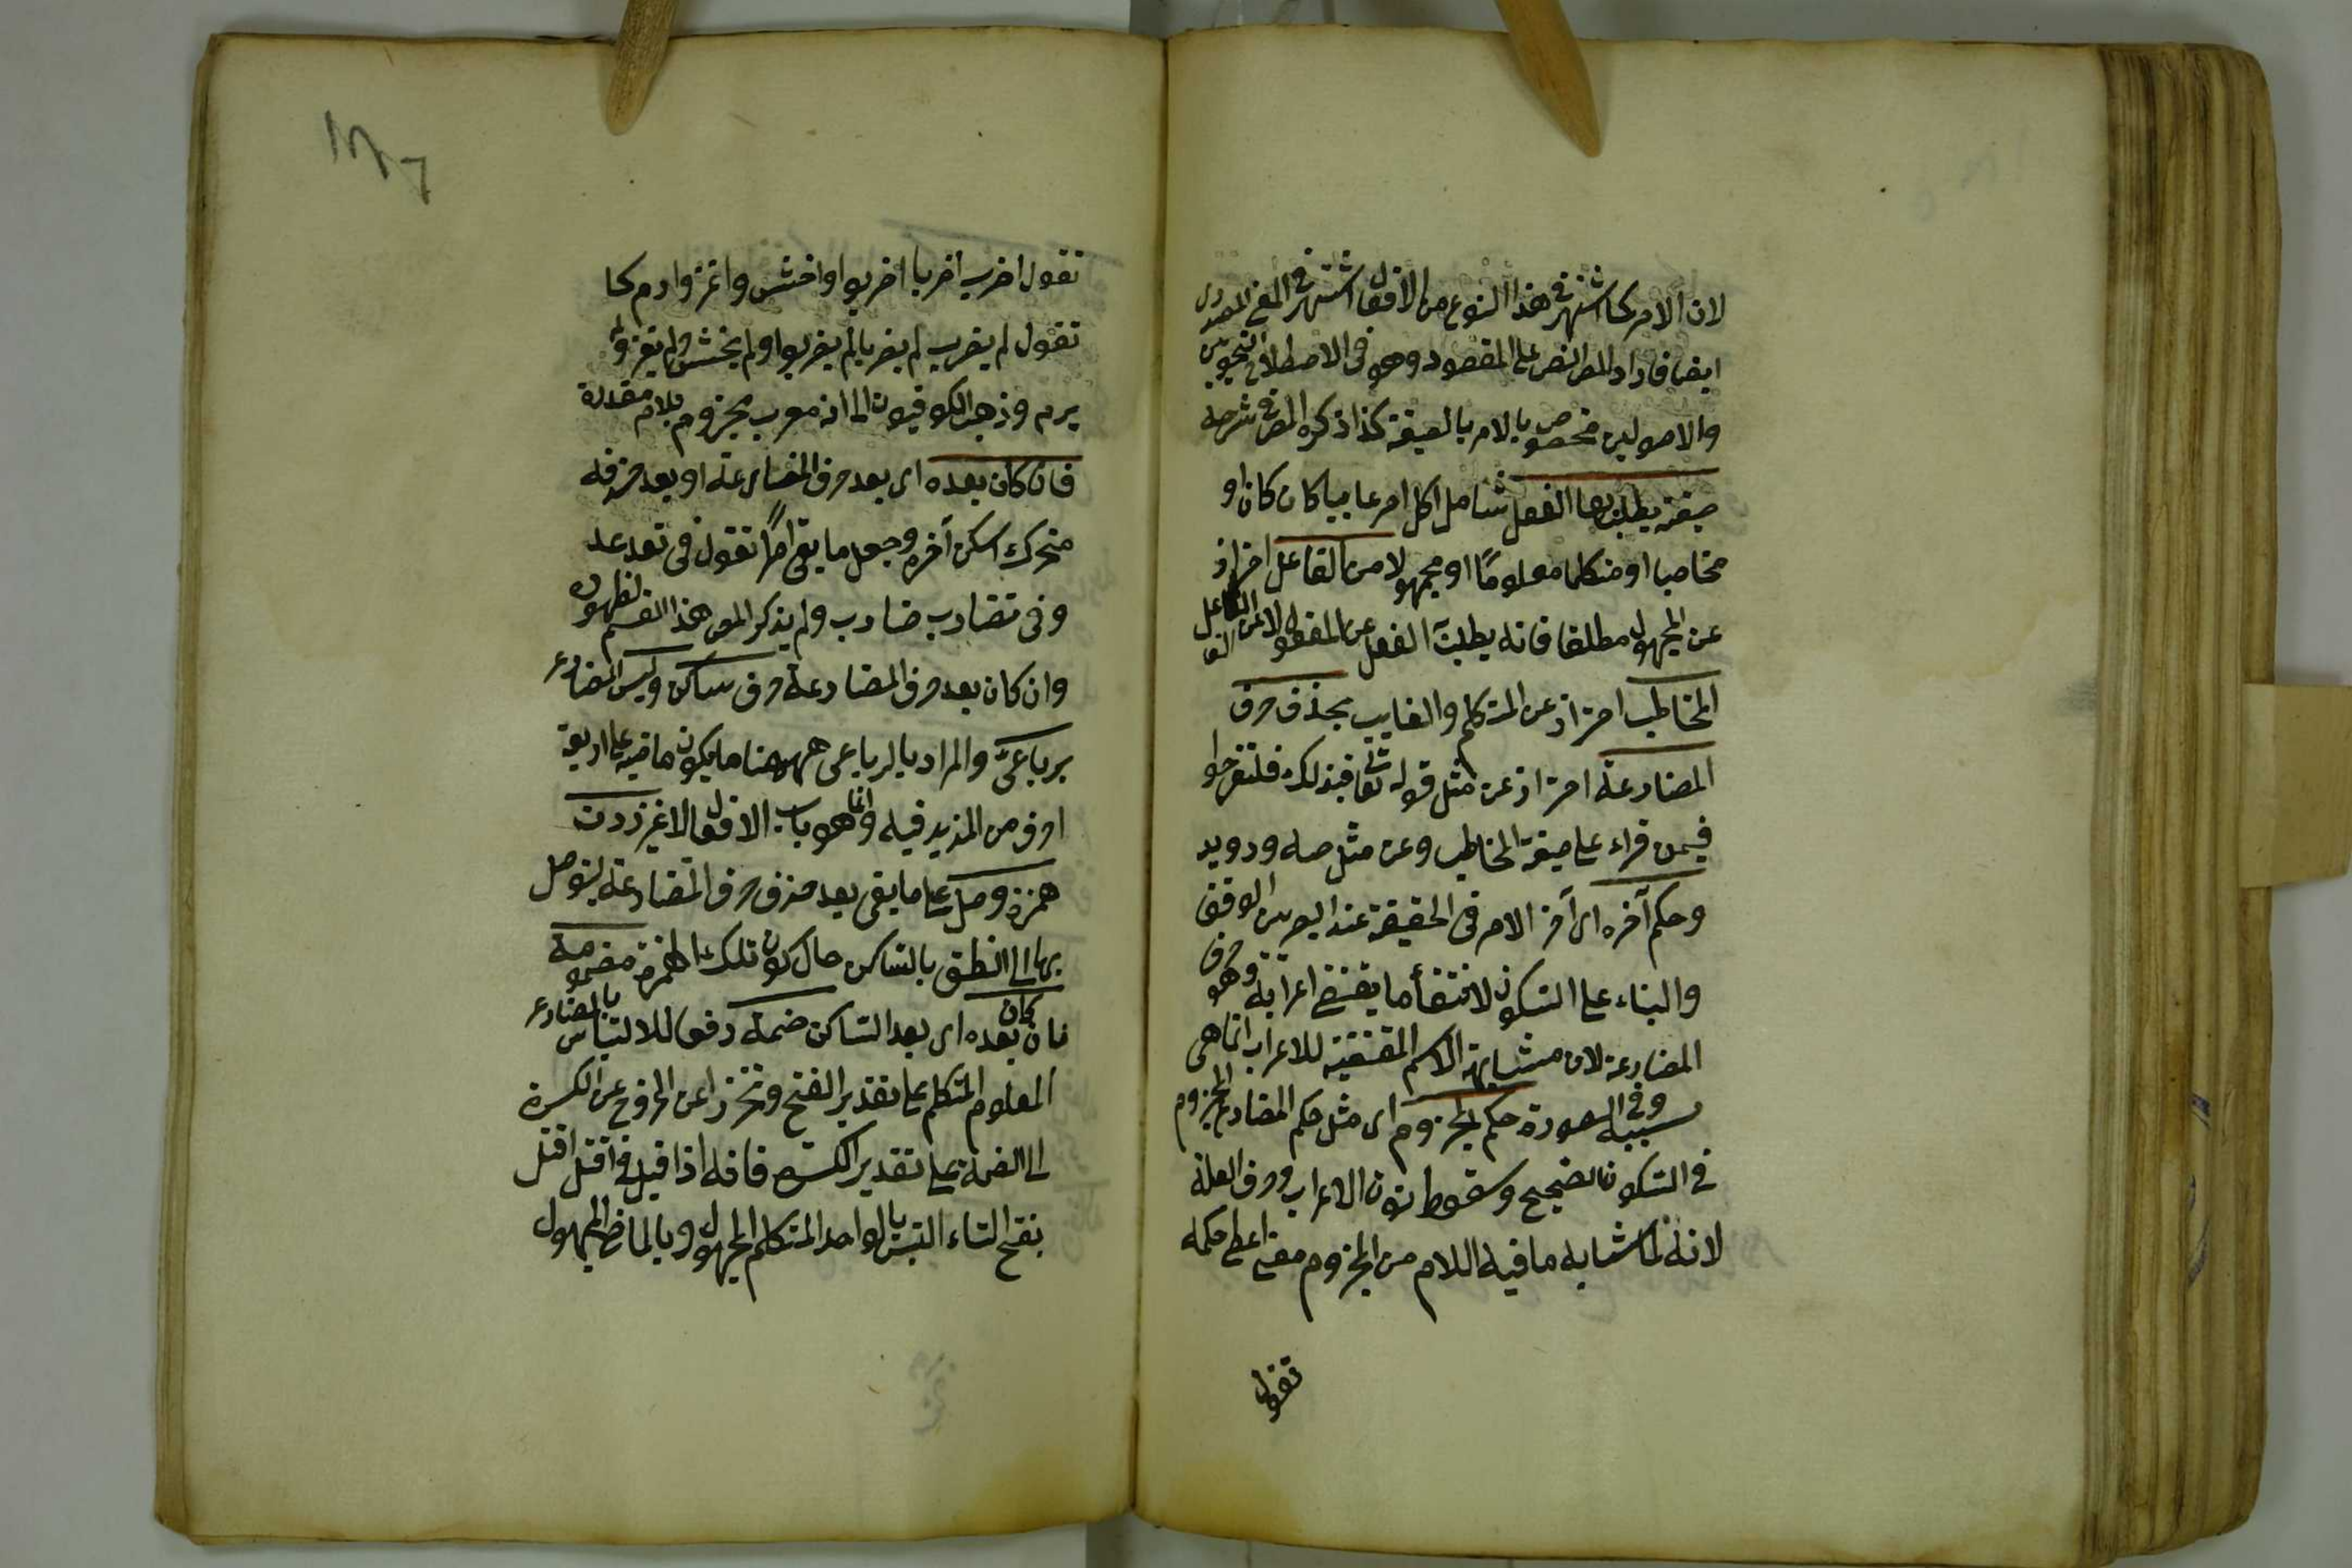 لان الامر كما اشتهر في هذا النوع من الافعال اشتهر في المعنى المصدري
ايضا فاراد المص النص على المقصود وهو في الاصطلاح النحويين
والاصوليين مخصوص بالامر بالصيغة كذا ذكره المص في شرحه
صيغة يطلب بها الفعل شامل لكل امر غايبا كان كان او
مخاطبا او متكلما معلومًا او مجهولا من الفاعل احتراز
عن المجهول مطلقا فانه يطلب الفعل عن المفعول لا عن الفاعل
المخاطب احتراز عن المتكلم والغايب بحذف حرف
المضارعة احتراز عن مثل قوله تعالى فبذلك فلتفرحوا
فيمن قراء على صيغة المخاطب وعن مثل صه ورويد
وحكم آخره اى آخر الامر في الحقيقة عند البصريين الوقف
والبناء على السكون لانتفاء ما يقتضى اعرابه وهو حرف
المضارعة لان مشابهة الاسم المقتضية للاعراب انما هى
بسببه وفي الصورة حكم المجزوم اى مثل حكم المضارع المجزوم
في السكون الصحيح وسقوط نون الاعراب وحرف العلة
لانه لما شابه ما فيه اللام من المجزوم معنى اعطى حكمه
تقول
تقول اضرب اضربا اضربوا واخش واغز وارم كما
تقول لم يضرب لم يضربا لم يضربوا ولم يخش ولم يغز ولم
يرم وذهب الكوفيون الى انه معرب مجزوم بلام مقدرة
فان كان بعده اى بعد حرف المضارعة او بعد حذفه
متحرك اسكن آخره وجعل ما بقى امرًا تقول في تعد عد
وفى تضارب ضارب ولم يذكر المص هذا القسم لظهوره
وان كان بعد حرف المضارعة حرف ساكن وليس المضارع
برباعىّ والمراد بالرباعى ههنا ما يكون ماضيه على اربعة
احرف من المزيد فيه وانما هو باب الافعال لا غير زدت
همزة وصل على ما بقى بعد حذف حرف المضارعة ليتوصل
بها الى النطق بالساكن حال كون تلك الهمزة مضمومة
فان كان بعده اى بعد الساكن ضمة دفعا للالتباس بالمضارع
المعلوم المتكلم على تقدير الفتح وتحرزا عن الخروج عن الكسرة
الى الضمة على تقدير الكسرة فانه اذا قيل في اقتل اقتل
بفتح التاء التبس بالواحد المتكلم المجهول وبالماضى المجهول